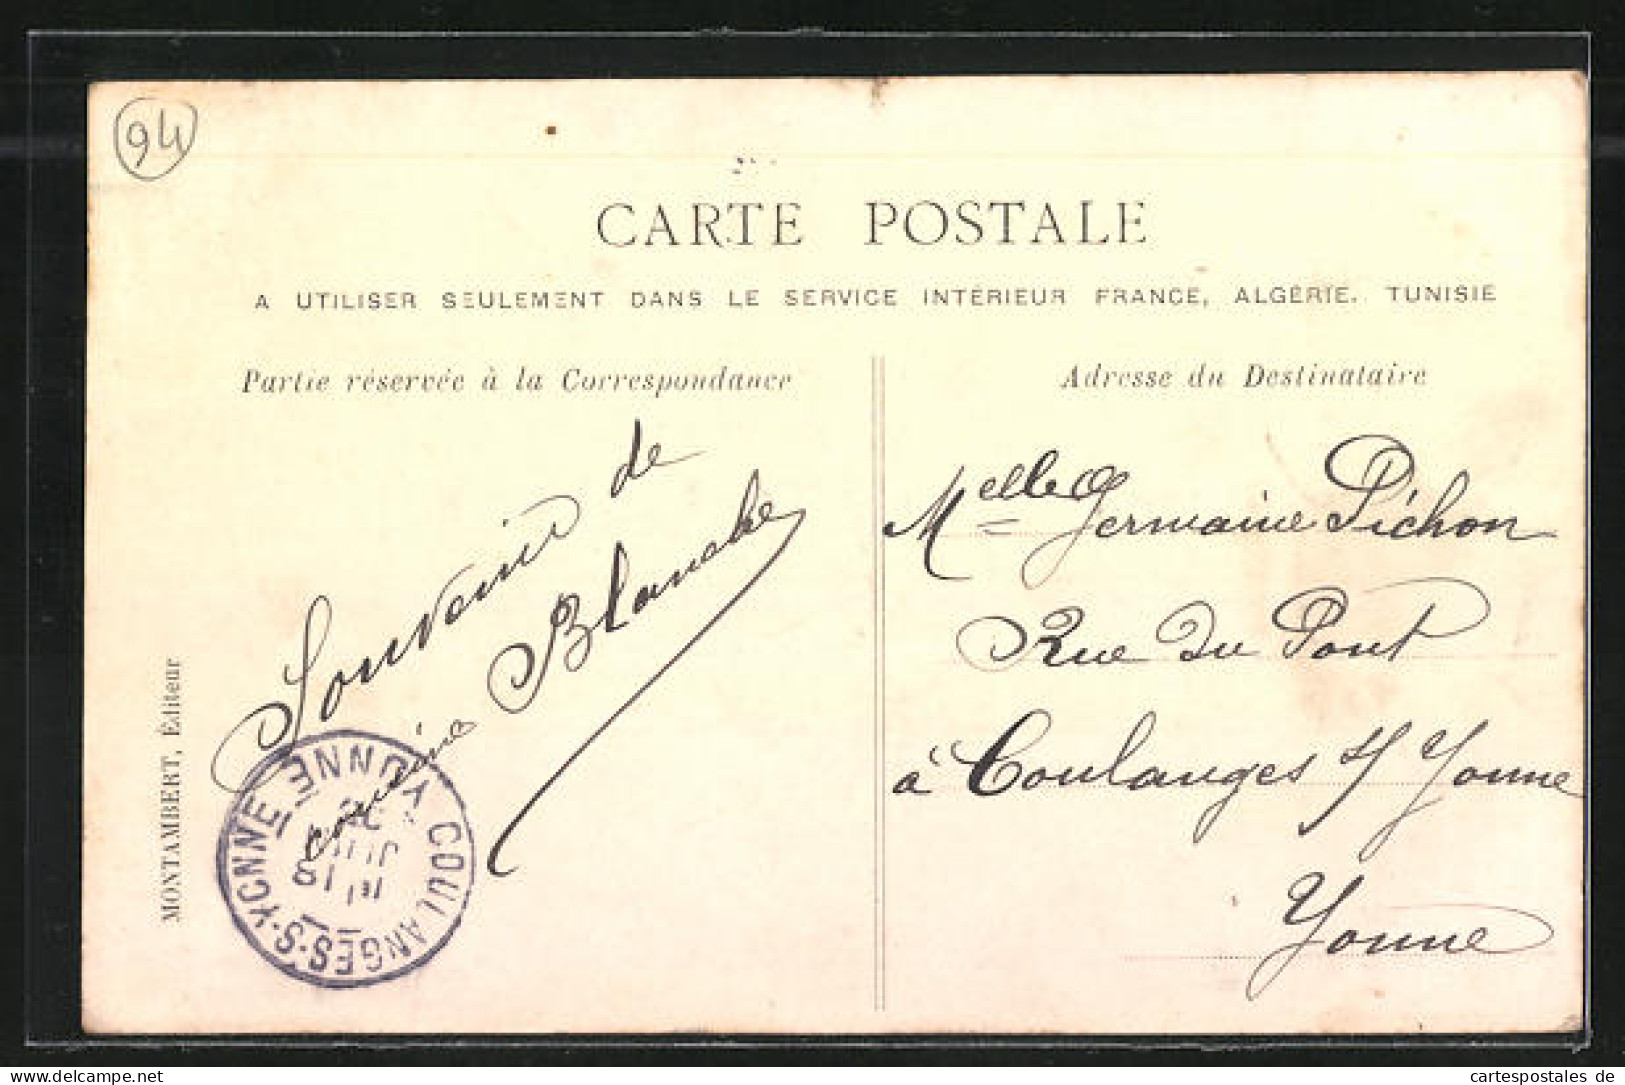 94
CARTE POSTALE
A UTILISER SEULEMENT DANS LE SERVICE INTÉRIEUR FRANCE, ALGÉRIE, TUNISIE
Partie réservée à la Correspondance
Souvenir de
cousine Blanche
MONTAMBERT, Éditeur
COULANGES-S-YONNE YONNE
18
Adresse du Destinataire
Melle Germaine Pichon
Rue du Pont
à Coulanges s/ Yonne
Yonne
www.cartespostales.de
cartespostales de